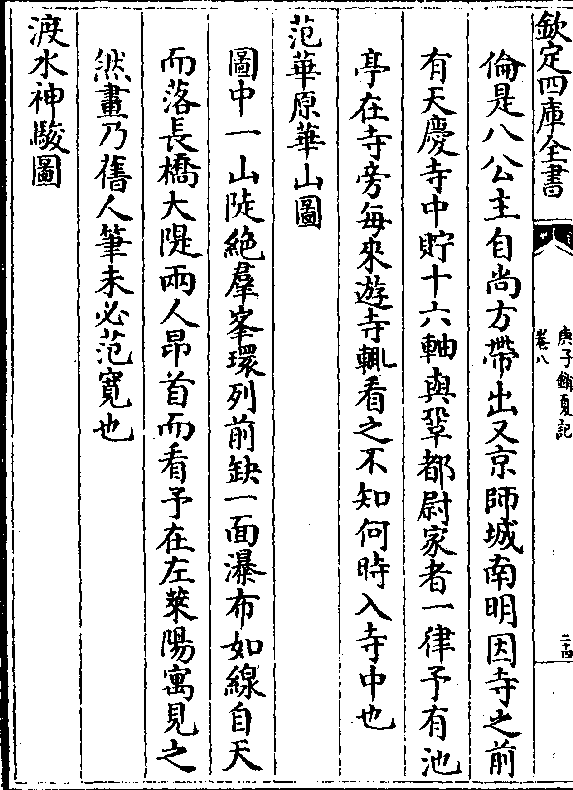 欽定四庫全書
庚子銷夏記
卷八
二十四
倫是八公主自尚方帶出又京師城南明因寺之前
有天慶寺中貯十六軸與鞏都尉家者一律予有池
亭在寺旁每來遊寺輒看之不知何時入寺中也
范華原華山圖
圖中一山陡絶羣峯環列前缺一面瀑布如線自天
而落長橋大隄兩人昂首而看予在左萊陽寓見之
然畫乃舊人筆未必范寛也
渡水神駿圖